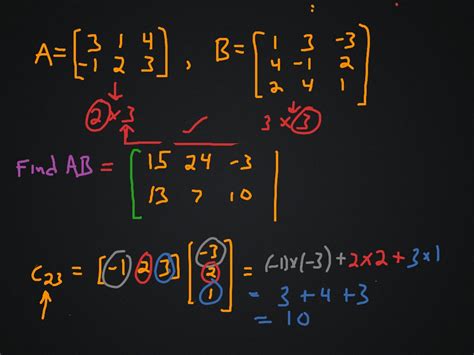 A = [3 1 4
-1 2 3] , B = [1 3 -3
4 -1 2
2 4 1]
2 x 3 3 x 3
Find AB = [15 24 -3
13 7 10
C23 = [-1 2 3] [-3
2
1] = (-1)x(-3) + 2x2 + 3x1
= 3 + 4 + 3
= 10